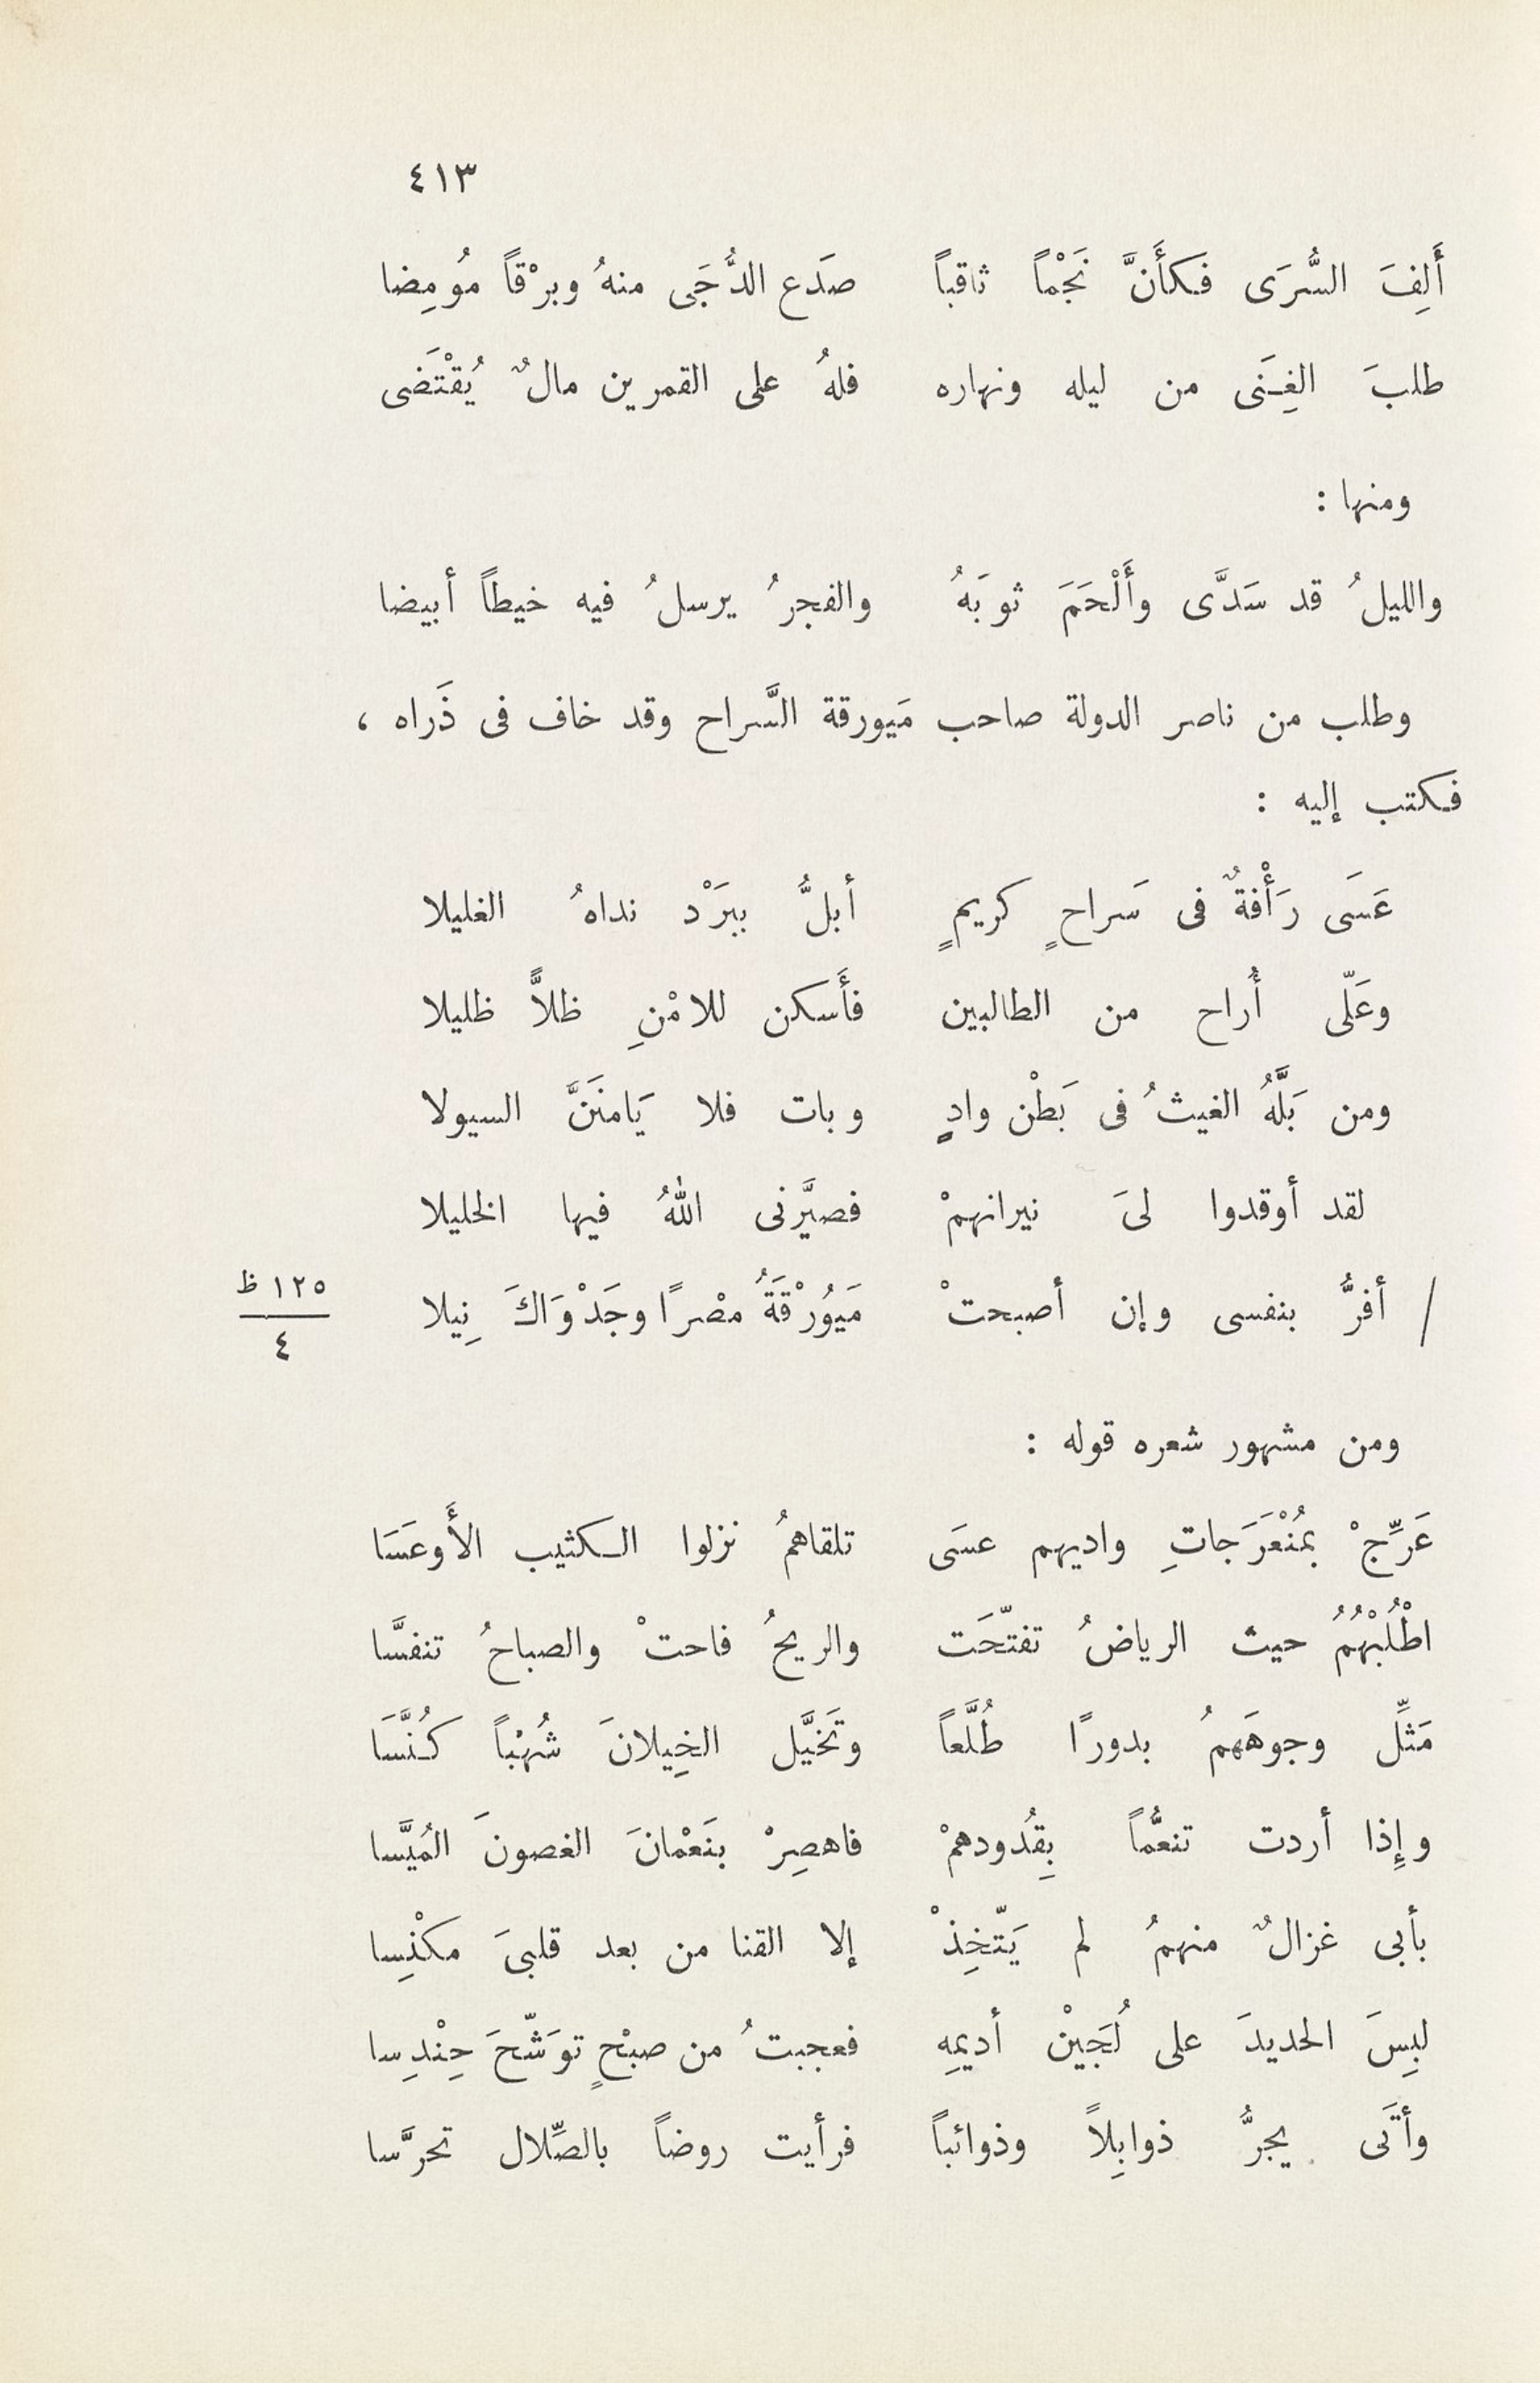 ٤١٣
أَلِفَ السُّرَى فكأَنَّ نَجْماً ثاقباً صدَع الدُّجَى منهُ وبرْقاً مُومِضا
طلبَ الغِنَى من ليله ونهاره فلهُ على القمرين مالٌ يُقْتَضَى
ومنها :
والليلُ قد سَدَّى وأَلْحَمَ ثوبَهُ والفجرُ يرسلُ فيه خيطاً أبيضا
وطلب من ناصر الدولة صاحب مَيورقة السَّراح وقد خاف فى ذَراه ،
فكتب إليه :
عَسَى رَأْفةٌ فى سَراحٍ كريمٍ أبلُّ ببرَدْ نداهُ الغليلا
وعَلّى أُراح من الطالبين فأَسكن للامْنِ ظلاًّ ظليلا
ومن بَلَّهُ الغيثُ فى بَطْن وادٍ وبات فلا يَامنَنَّ السيولا
لقد أوقدوا لىَ نيرانهمْ فصيَّرنى اللهُ فيها الخليلا
/ أفرُّ بنفسى وإن أصبحتْ مَيُورْقَةُ مصْرًا وجَدْوَاكَ نِيلا
١٢٥ ظ
٤
ومن مشهور شعره قوله :
عَرِّجْ بمُنْعَرَجاتِ واديهم عسَى تلقاهمُ نزلوا الكثيب الأَوعَسَا
اطْلُبْهُمُ حيث الرياضُ تفتّحَت والريحُ فاحتْ والصباحُ تنفسَّا
مَثِّل وجوهَهمُ بدورًا طُلَّعاً وتَخيَّل الخِيلانَ شُهْباً كُنَّسَا
وإِذا أردت تنعُّماً بِقُدودهمْ فاهصِرْ بنَعْمانَ الغصونَ المُيَّسا
بأبى غزالٌ منهمُ لم يَتّخِذْ إلا القنا من بعد قلبىَ مكْنِسا
لبِسَ الحديدَ على لُجَيْن أديمِه فعجبتُ من صبْحٍ توَشّحَ حِنْدِسا
وأتَى يجرُّ ذوابِلاً وذوائباً فرأيت روضاً بالصِّلال تحرَّسا